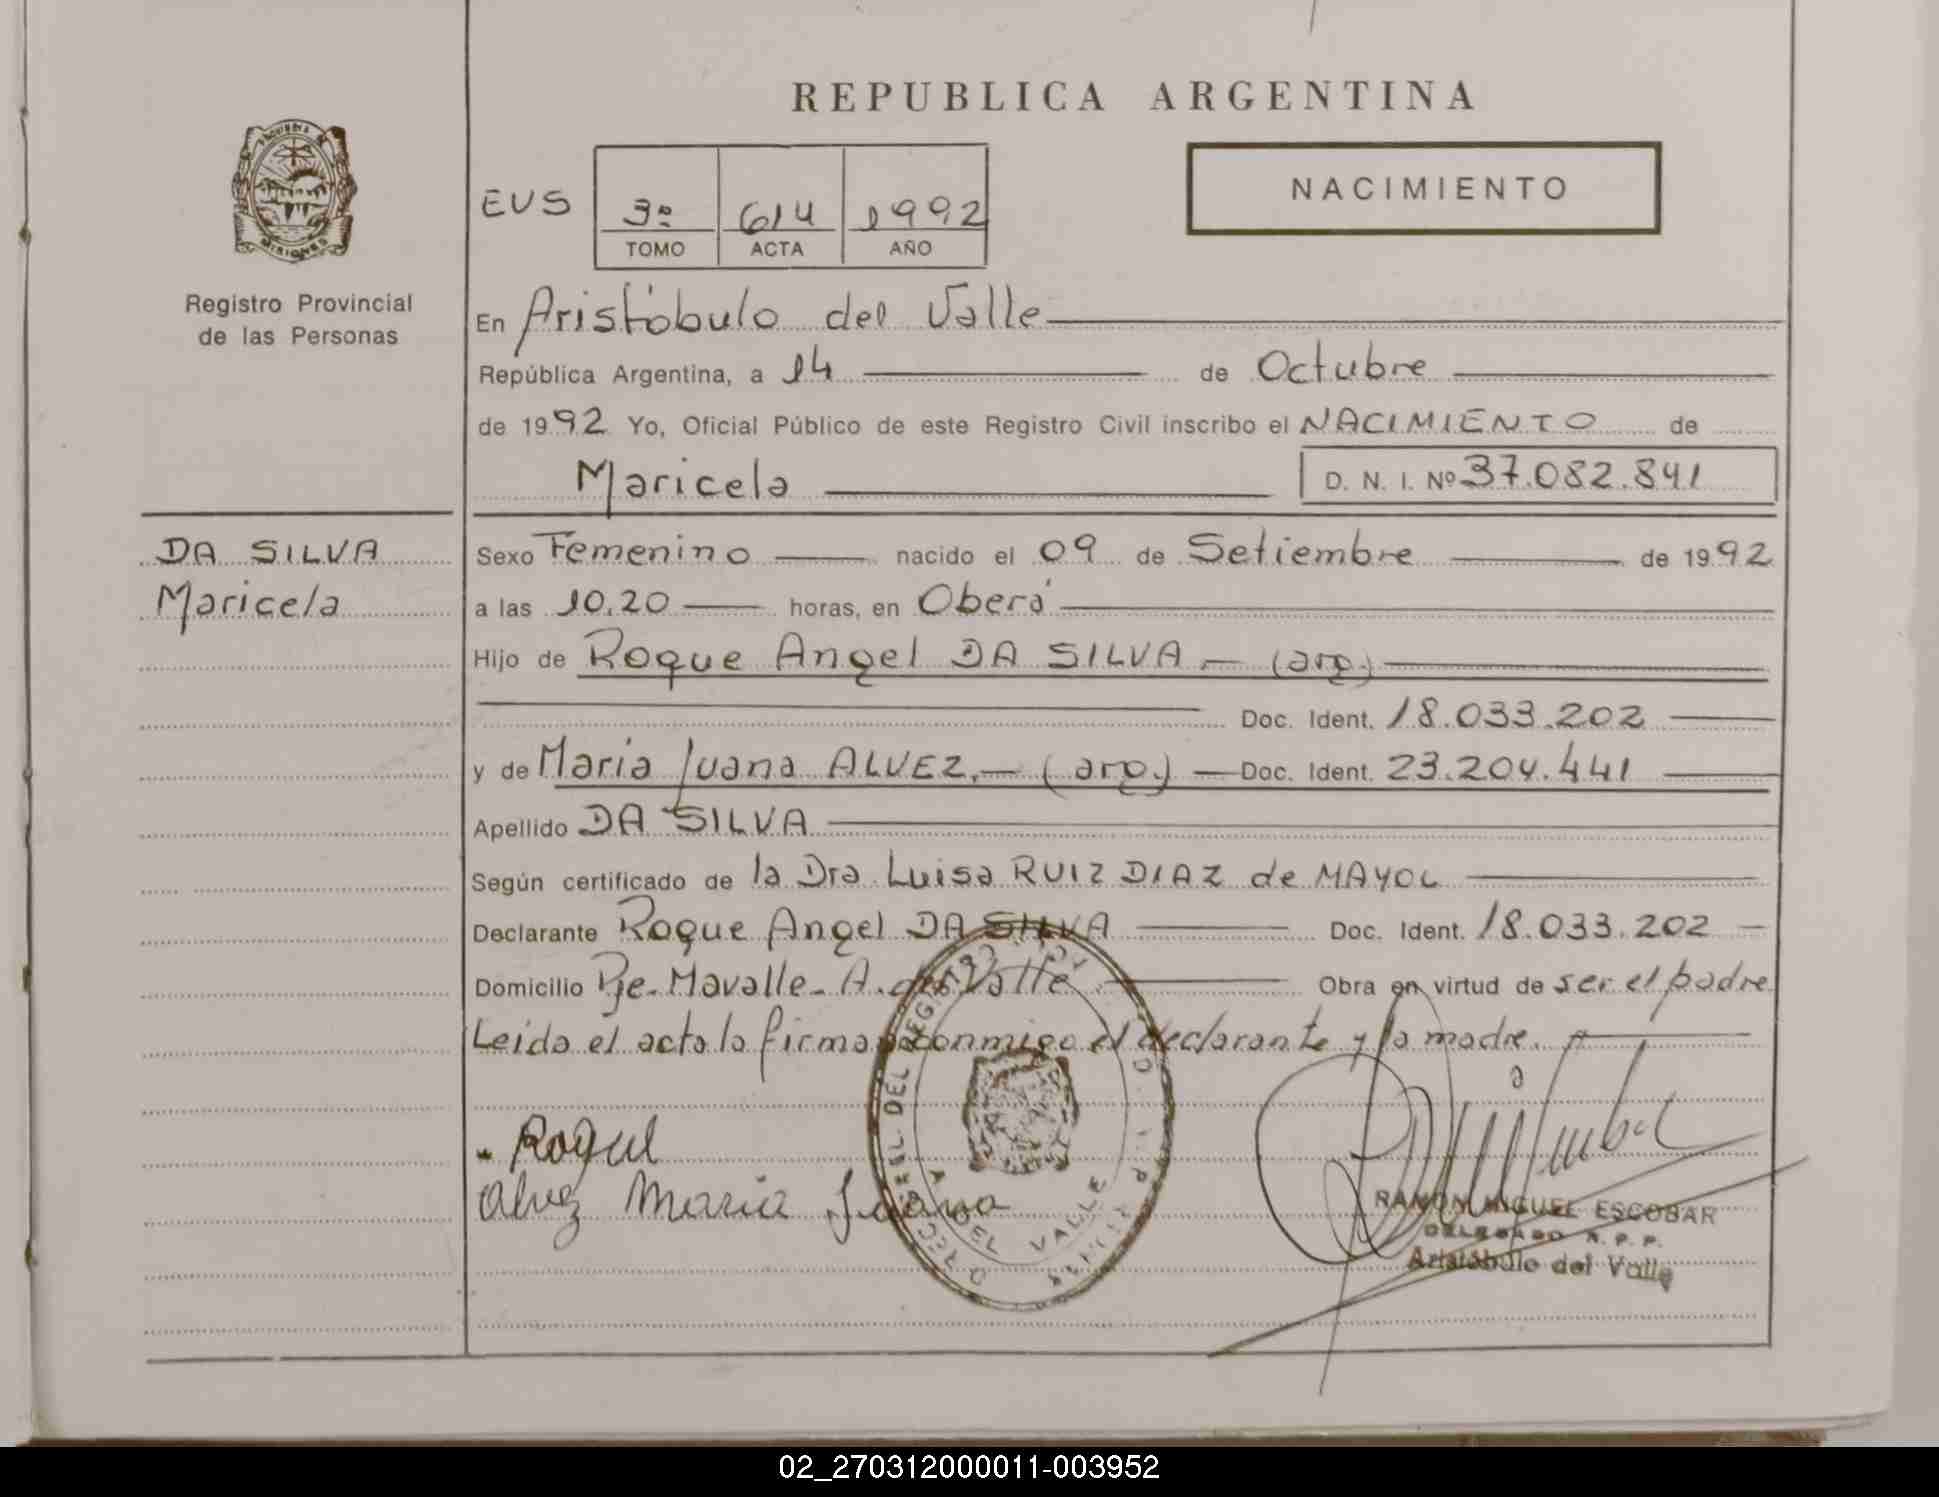 REPUBLICA ARGENTINA
NACIMIENTO
EVS
3º 614 1992
TOMO ACTA AÑO
MISIONES
Registro Provincial
de las Personas
En Aristóbulo del Valle
República Argentina, a 14 de Octubre
de 1992 Yo, Oficial Público de este Registro Civil inscribo el NACIMIENTO de
Maricela D. N. I. Nº 37.082.841
DA SILVA
Maricela
Sexo Femenino nacido el 09 de Setiembre de 1992
a las 10.20 horas, en Oberá
Hijo de Roque Angel DA SILVA.- (arg.)
Doc. Ident. 18.033.202
y de Maria Juana ALVEZ.- (arg.) Doc. Ident. 23.204.441
Apellido DA SILVA
Según certificado de la Dra. Luisa RUIZ DIAZ de MAYOL
Declarante Roque Angel DA SILVA Doc. Ident. 18.033.202
Domicilio Pje. Mavalle- A. del Valle Obra en virtud de ser el padre
Leida el acta la firman conmigo el declarante y la madre.
Roque
Alvez Maria Juana
DEL VALLE
RAMON MIGUEL ESCOBAR
DELEGADO R. P. P.
Aristóbulo del Valle
02_270312000011-003952